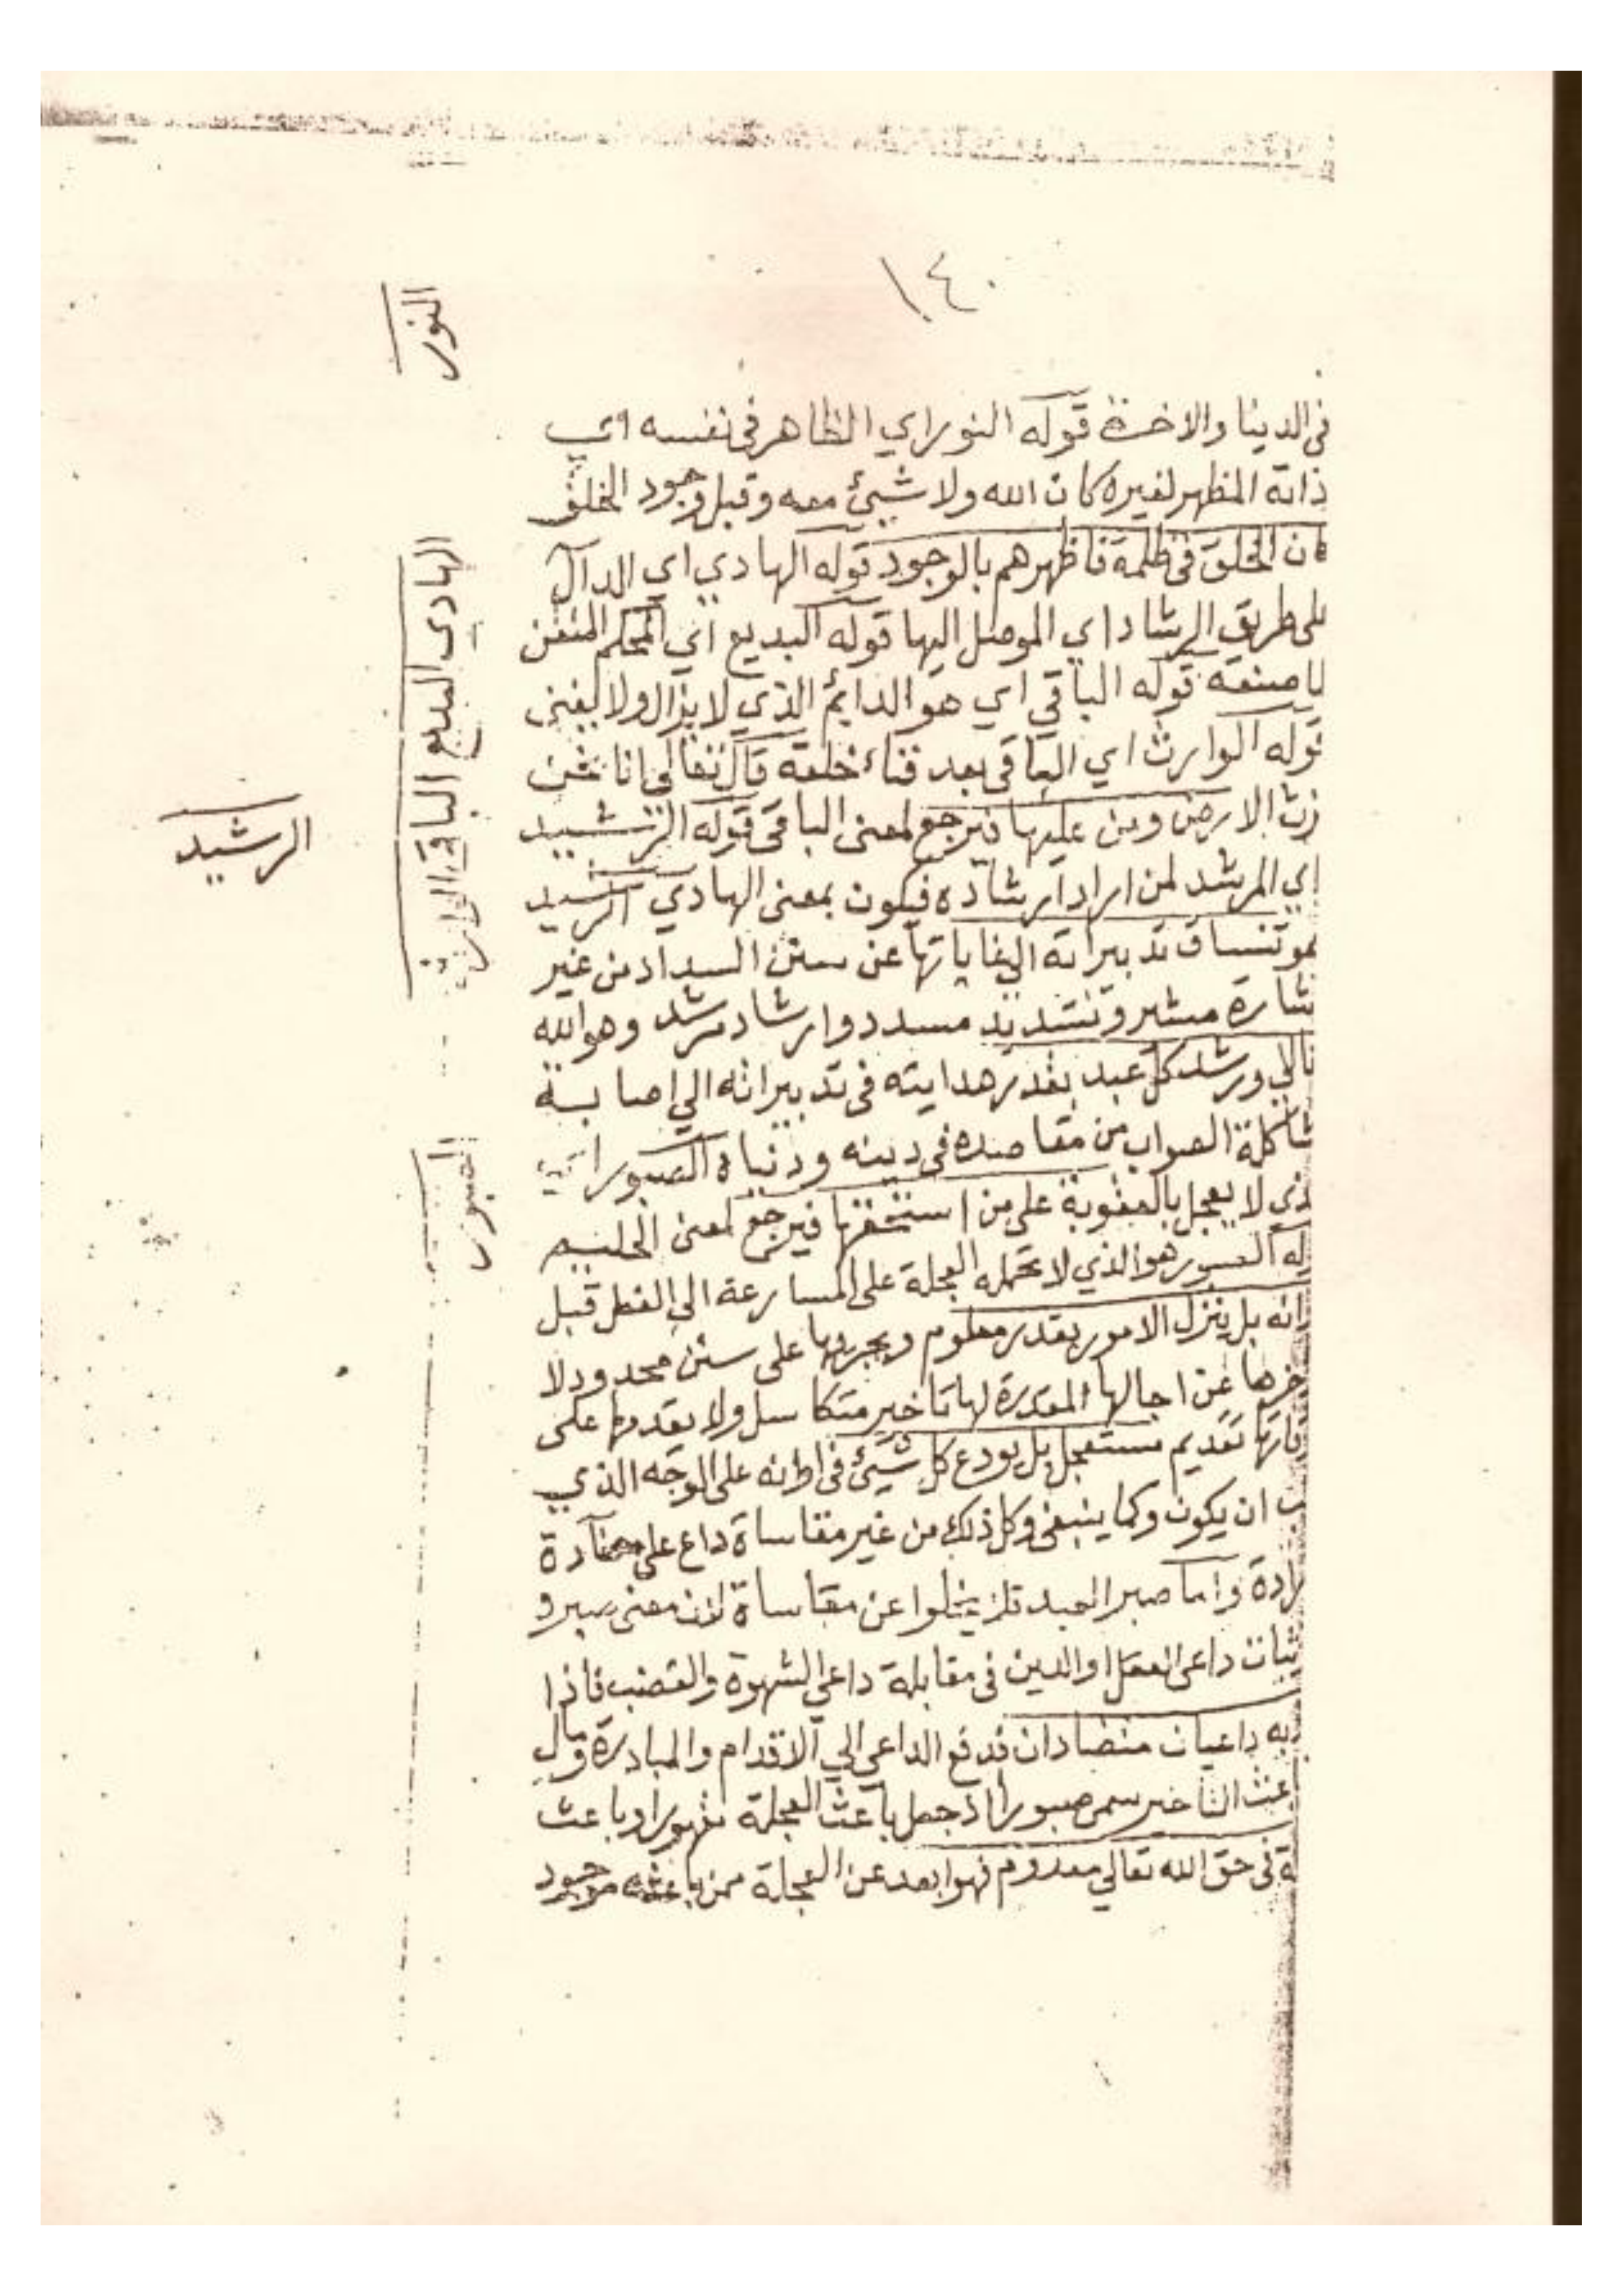 ١٤٠
النور
في الدنيا والاخرة قوله النور اي الظاهر في نفسه اي
ذاته المظهر لغيره كان الله ولا شيئ معه وقبل وجود الخلق
كان الخلق في ظلمة فاظهرهم بالوجود قوله الهادي اي الدال
على طريق الرشاد اي الموصل اليها قوله البديع اي المحكم المتقن
صنعه قوله الباقي اي هو الدايم الذي لا يزال ولا يفنى
قوله الوارث اي الباقي بعد فناء خلقه قال تعالى انا نحن
نرث الارض ومن عليها فيرجع لمعنى الباقي قوله الرشيد
اي المرشد لمن اراد ارشاده فيكون بمعنى الهادي الرشيد
هو تنساق تدبيراته الى غاياتها عن سنن السداد من غير
شارة مشير وتسديد مسدد وارشاد مرشد وهو الله
تالي ورشد كل عبد بقدر هدايته في تدبيراته الي اصابة
شاكلة الصواب من مقاصده في دينه ودنياه الصبور اي
لذي لا يعجل بالعقوبة على من استحقها فيرجع لمعنى الحليم
له الصبور هو الذي لا تحمله العجلة على المسارعة الى الفعل قبل
انه بل ينزل الامور بقدر معلوم ويجريها على سنن محدود لا
خرها عن اجالها المقدرة لها تاخير متكاسل ولا يقدمها على
قاتها تقديم مستعجل بل يودع كل شيئ في اوانه على الوجه الذي
ب ان يكون وكما ينبغي وكل ذلك من غير مقاساة داع على مضادة
رادة واما صبر العبد فلا يخلوا عن مقاساة لان معنى صبره
ثبات داعي العقل او الدين في مقابلة داعي الشهوة والغضب فاذا
به داعيان متضادان فدفع الداعي الي الاقدام والمبادرة ومال
عث التاخير سمى صبورا اذ جعل باعث العجلة مقهورا وباعث
ة في حق الله تعالي معدوم فهو ابعد عن العجلة ممن باعثه موجود
الهادي البديع الباقي الوارث
الرشيد
الصبور